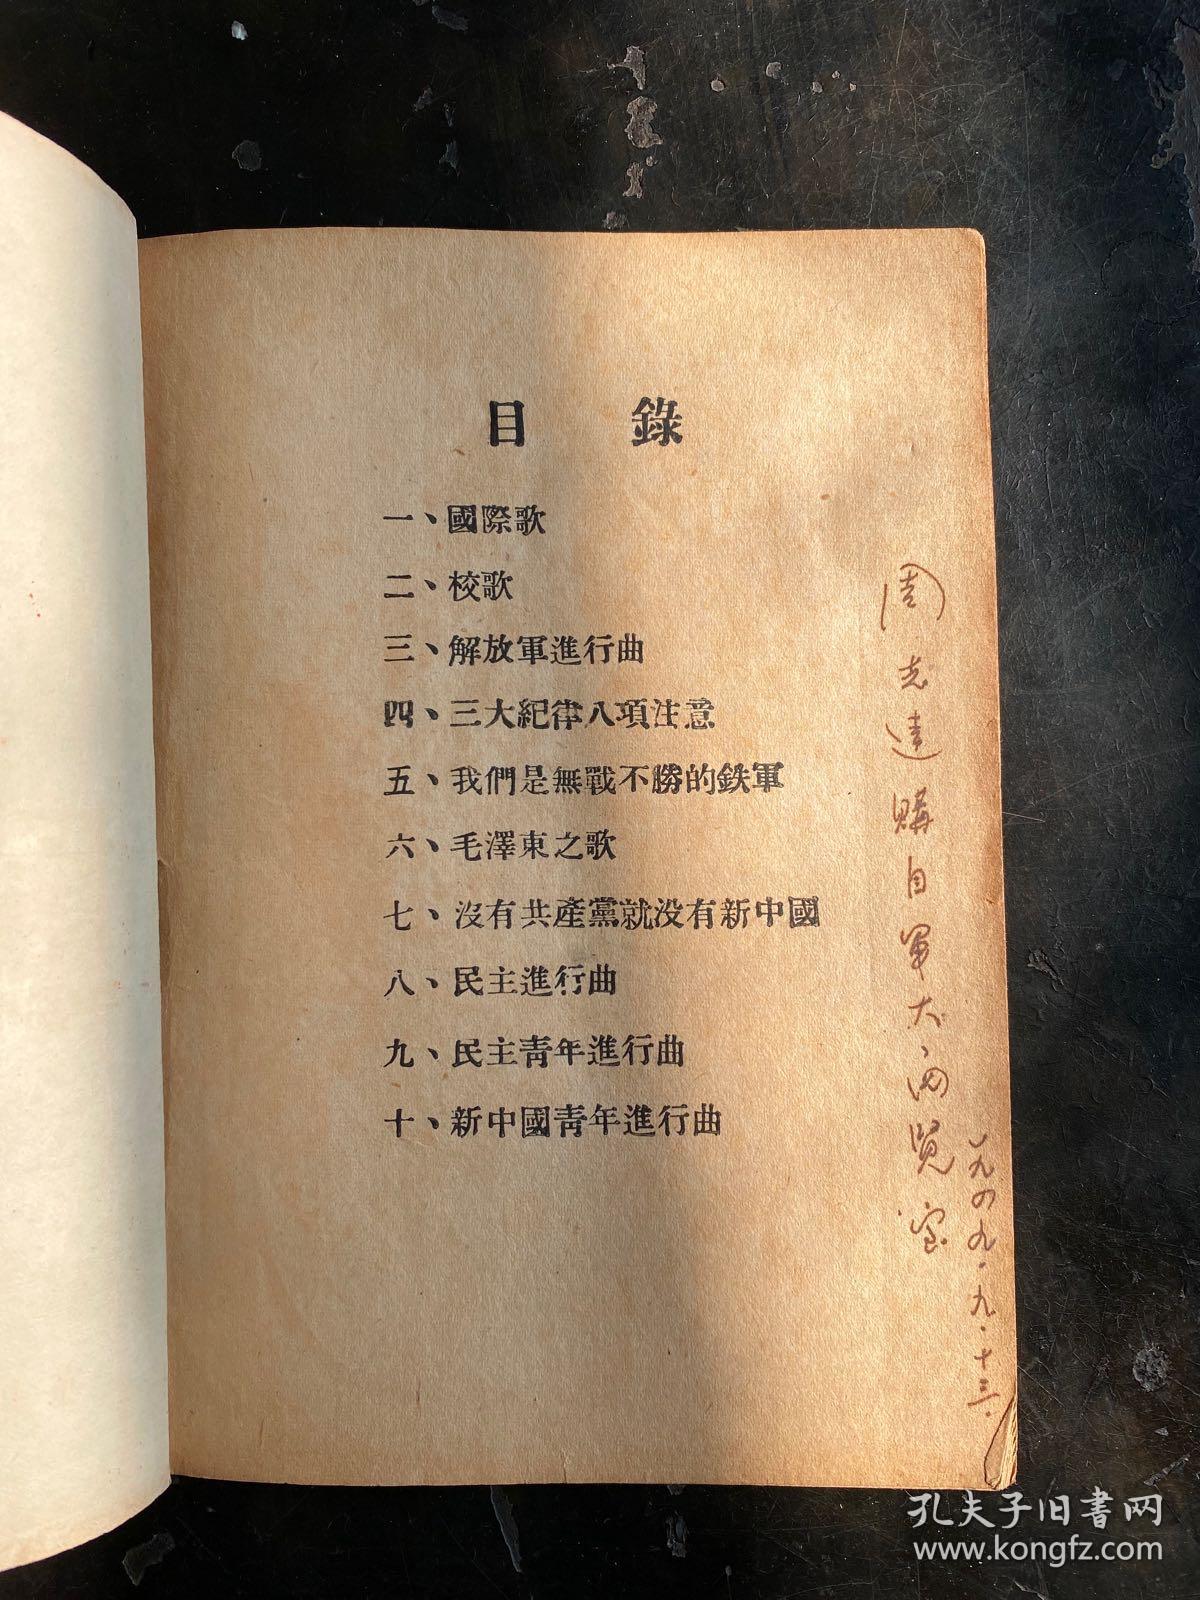 目 錄
一、國際歌
二、校歌
三、解放軍進行曲
四、三大紀律八項注意
五、我們是無戰不勝的鉄軍
六、毛澤東之歌
七、沒有共產黨就没有新中國
八、民主進行曲
九、民主靑年進行曲
十、新中國靑年進行曲
周志達購自軍大
一九四九.九.十三.
孔夫子旧書网
www.kongfz.com